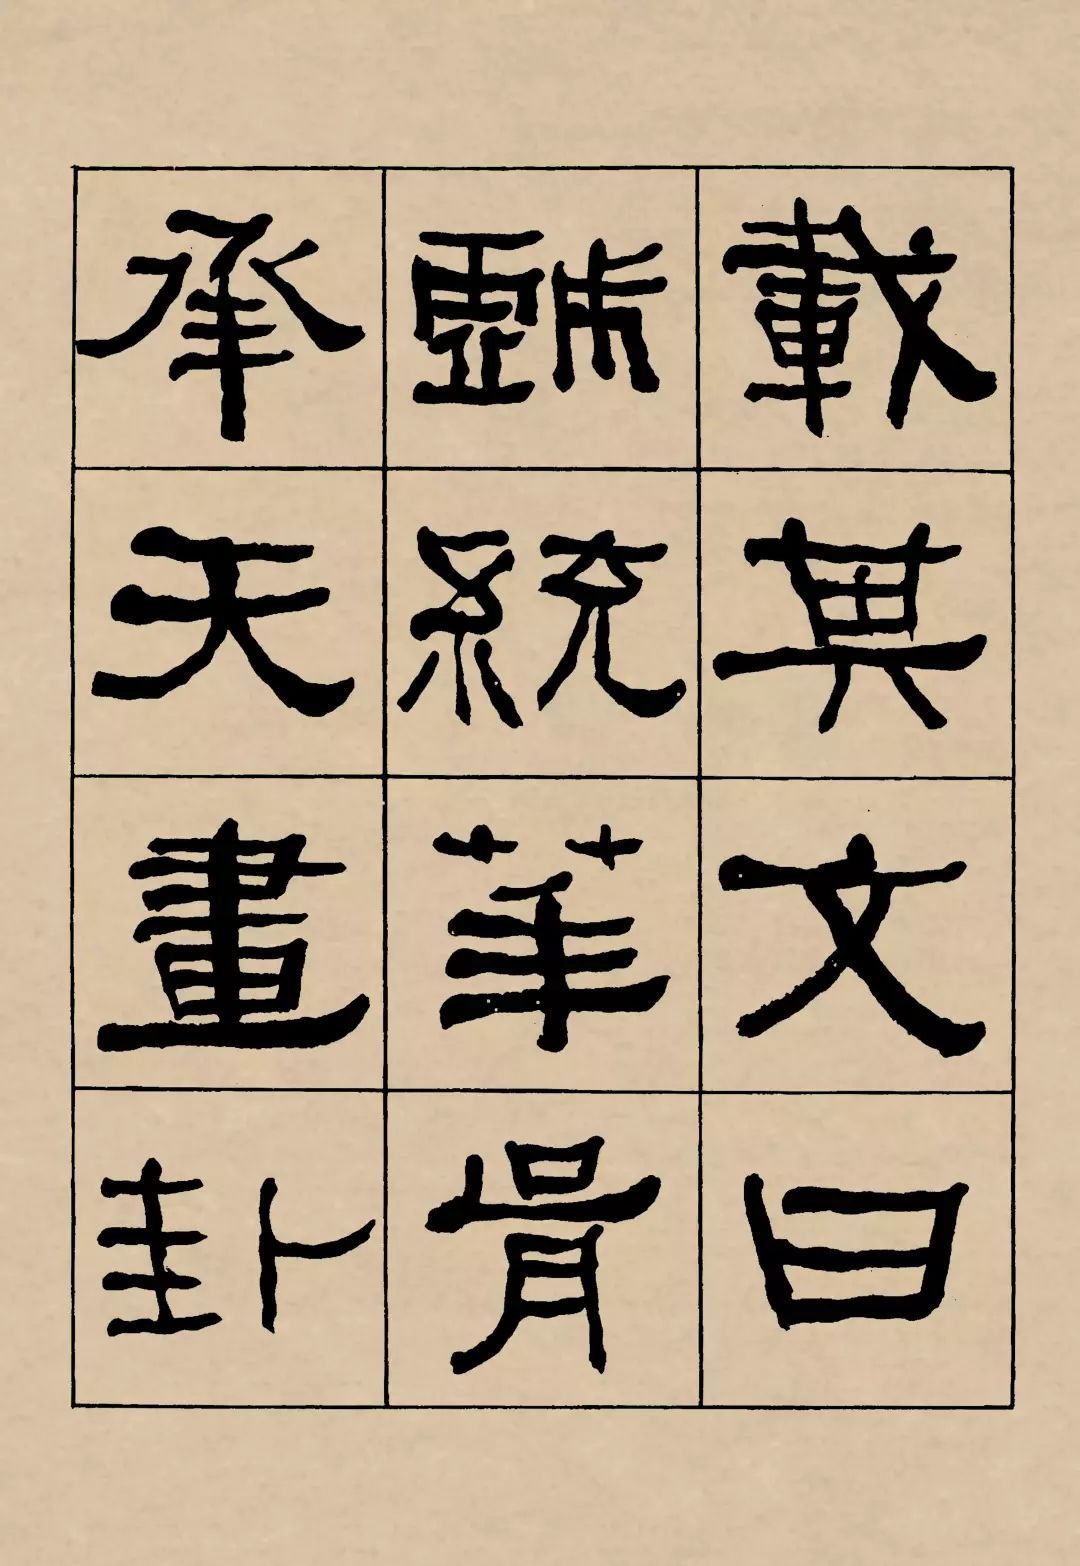 載其文曰
戲統華胥
承天畫卦